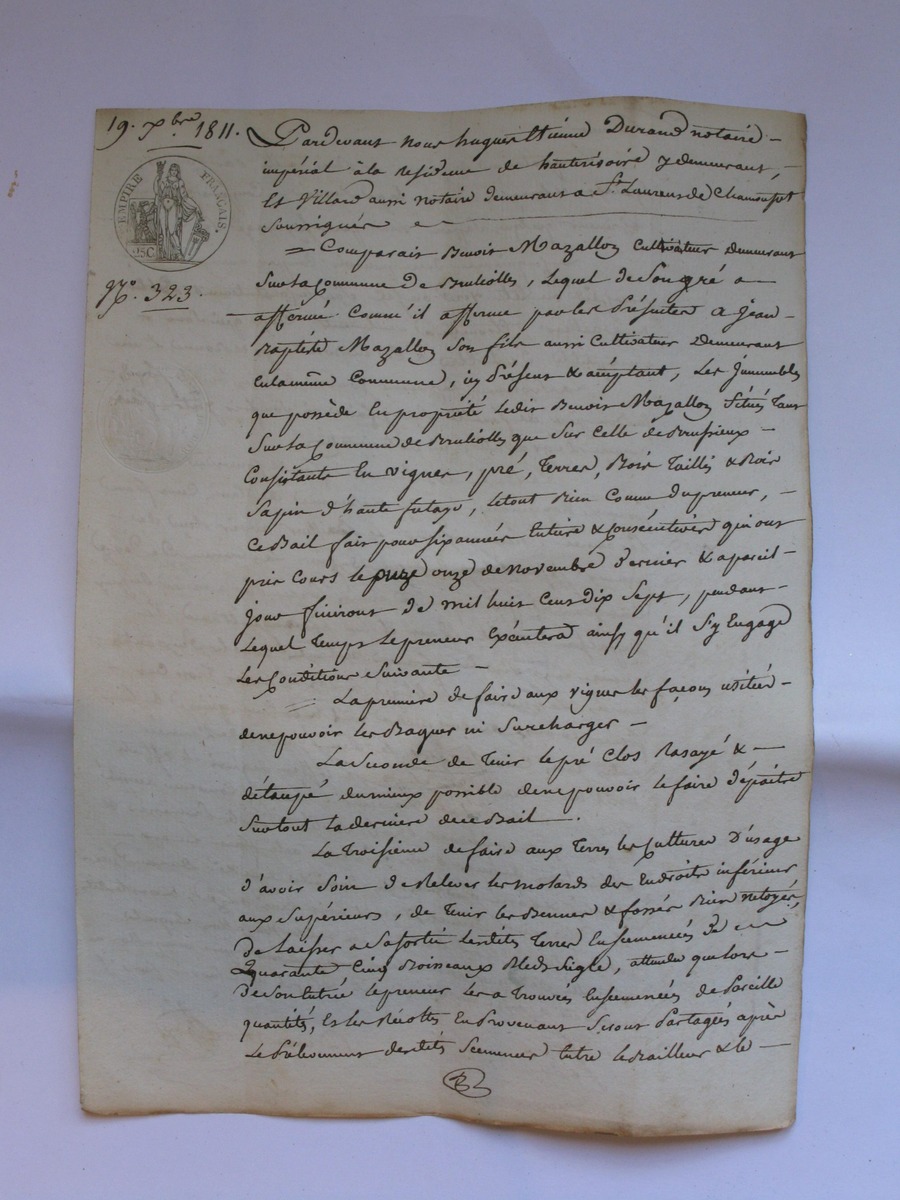 19. Xbre 1811.
EMPIRE FRANÇAIS.
25C
No. 323.
Pardevant nous hugues Etienne Durand notaire
impérial à la residence de hauterivoire y demeurant,
Et Villard aussi notaire demeurant a St. Laurent de Chamousset
Soussignés
Comparait Benoit Mazallon Cultivateur Demeurant
Sur la Commune de Brullioles, Lequel de Son gré a
affermé Comme il afferme par les Présentes a Jean
Baptiste Mazallon Son fils aussi Cultivateur Demeurant
En la même Commune, icy Présent & acceptant, Les Immeubles
que possède En propriété ledit Benoit Mazallon Situés Tant
Sur la Commune de Brullioles que Sur Celle de Brussieux
Consistants En vignes, pré, Terres, Bois Taillis & Bois
Sapin d'haute futaye, le tout Bien Connu du preneur,
Ce Bail fait pour Six années Entieres & Consécutives qui ont
pris Cours le onze de Novembre dernier & a pareil
Jour finiront de mil huit Cent dix Sept, pendant
Lequel Temps le preneur Exécutera ainsy qu'il S'y Engage
Les Conditions Suivantes
La premiere de faire aux vignes les façons usitées
de ne pouvoir les Baquer ni Surcharger
La Seconde de Tenir le pré Clos Rasayé &
détaupé du mieux possible de ne pouvoir le faire dépaitre
Surtout la derniere de ce Bail.
La Troisieme de faire aux Terres les Cultures D'usage
d'avoir Soin de Relever les motards des Endroits inférieurs
aux Supérieurs, de Tenir les Bennes & fossés Bien Netoyés,
De Laisser a Sa Sortie lesdites Terres Ensemencées de
Quarante Cinq Boisseaux Bled Seigle, attendu que lors
de Son Entrée le preneur les a Trouvées Ensemencées de Pareille
quantité, Et les Récoltes En Provenant Seront Partagées après
Le Prélevement desdites Semences Entre le Bailleur & le